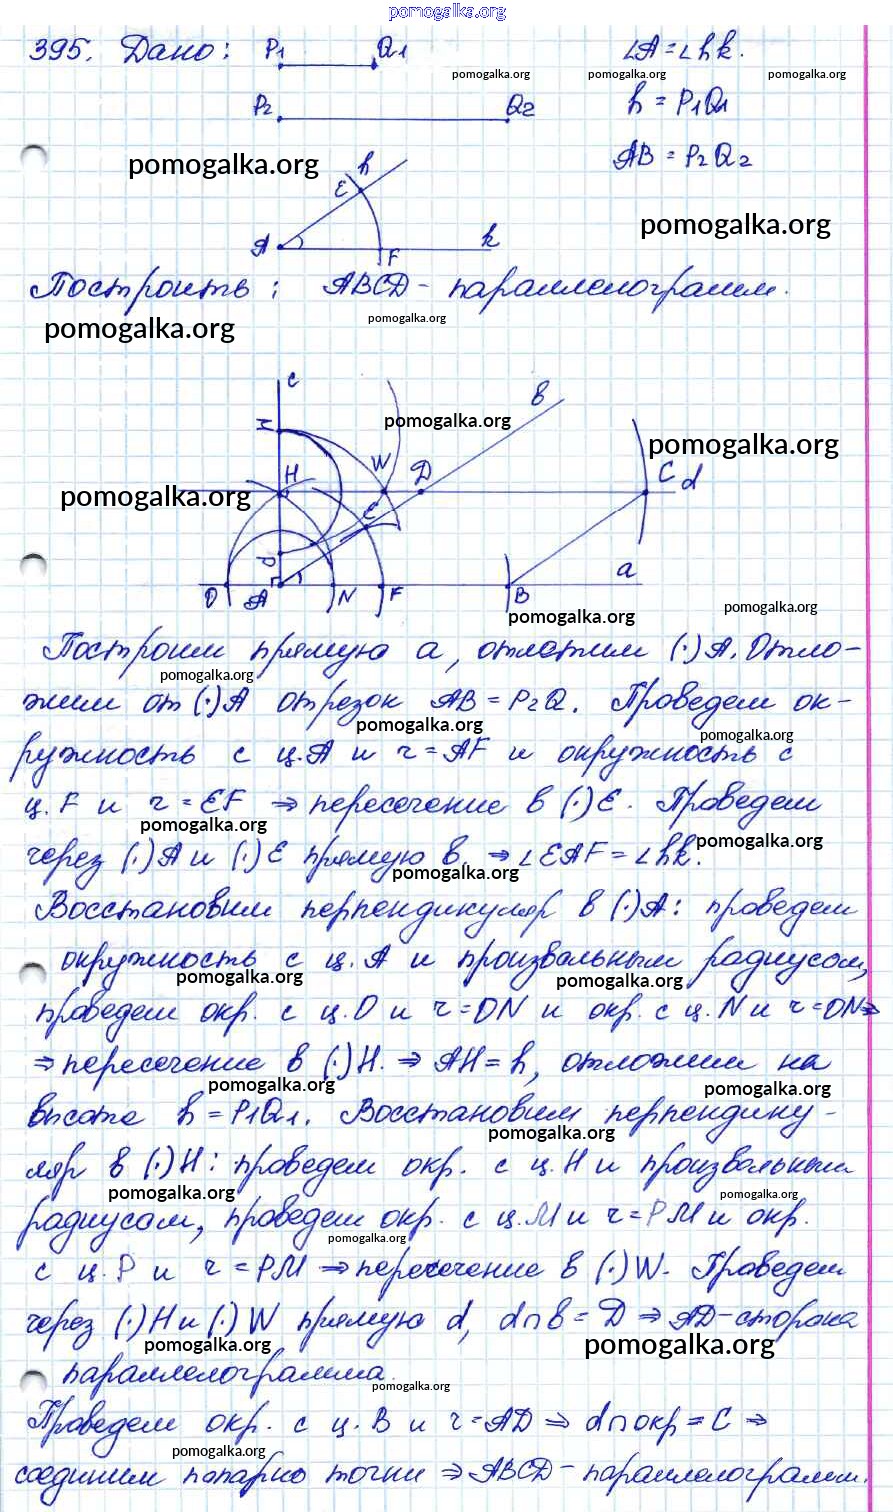 pomogalka.org
395. Дано: P1 Q1 ∠A = ∠hk.
pomogalka.org pomogalka.org pomogalka.org
P2 Q2 h = P1Q1
pomogalka.org h AB = P2Q2
E
pomogalka.org
A F k
Построить: ABCD - параллелограмм.
pomogalka.org pomogalka.org
c в
pomogalka.org
M pomogalka.org
H W D C d
pomogalka.org
E
P a
O A N F B
pomogalka.org pomogalka.org
Построим прямую a, отметим (·)A. Отло-
pomogalka.org
жим от (·)A отрезок AB = P2Q. Проведем ок-
pomogalka.org pomogalka.org
ружность с ц.A и r = AF и окружность с
ц. F и r = EF ⇒ пересечение в (·)E. Проведем
pomogalka.org pomogalka.org
через (·)A и (·)E прямую в, ⇒ ∠EAF = ∠hk.
pomogalka.org
Восстановим перпендикуляр в (·)A: проведем
окружность с ц. A и произвальным радиусом,
pomogalka.org pomogalka.org
проведем окр. с ц. O и r = ON и окр. с ц. N и r = ON ⇒
⇒ пересечение в (·)H. ⇒ AH = h, отложим на
pomogalka.org pomogalka.org
высоте h = P1Q1. Восстановим перпендику-
pomogalka.org
ляр в (·)H: проведем окр. с ц. H и произвольным
pomogalka.org pomogalka.org
радиусом, проведем окр. с ц. M и r = PM и окр.
pomogalka.org
с ц. P и r = PM ⇒ пересечение в (·)W. Проведем
через (·)H и (·)W прямую d, d∩в = D ⇒ AD - сторона
pomogalka.org pomogalka.org
параллелограмма.
pomogalka.org
Проведем окр. с ц. B и r = AD ⇒ d∩окр = C ⇒
pomogalka.org
соединим попарно точки ⇒ ABCD - параллелограмм.